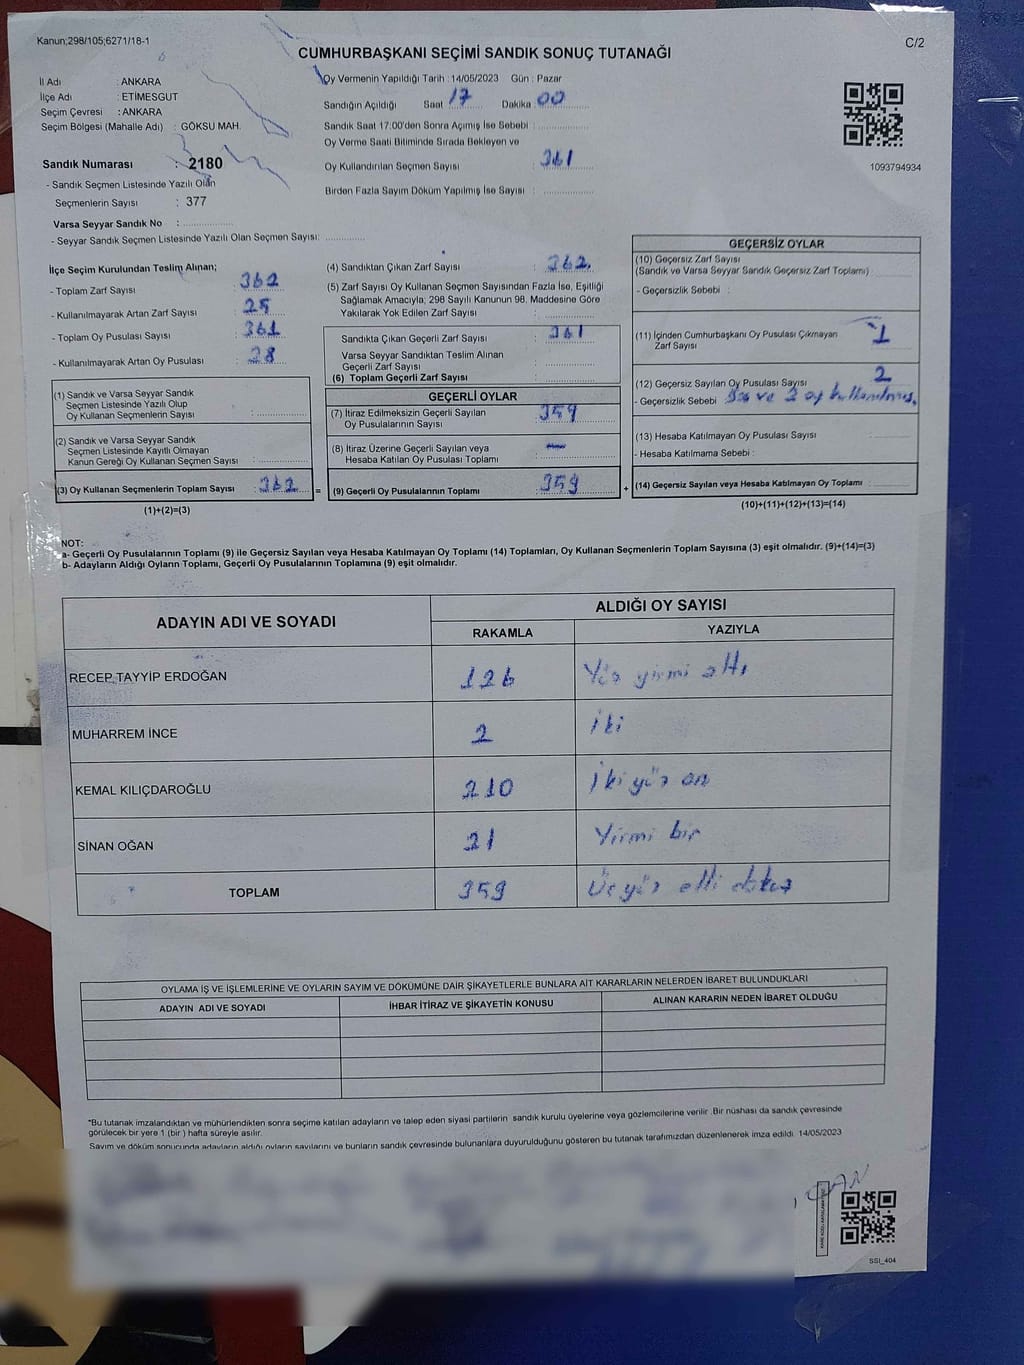 Kanun;298/105;6271/18-1
C/2
CUMHURBAŞKANI SEÇİMİ SANDIK SONUÇ TUTANAĞI
İl Adı : ANKARA
İlçe Adı : ETİMESGUT
Seçim Çevresi : ANKARA
Seçim Bölgesi (Mahalle Adı) : GÖKSU MAH.
Oy Vermenin Yapıldığı Tarih : 14/05/2023 Gün : Pazar
Sandığın Açıldığı Saat 17 Dakika : 00
Sandık Saat 17:00'den Sonra Açılmış İse Sebebi :
Oy Verme Saati Bitiminde Sırada Bekleyen ve
Oy Kullandırılan Seçmen Sayısı : 361
Birden Fazla Sayım Döküm Yapılmış İse Sayısı :
1093794934
Sandık Numarası : 2180
- Sandık Seçmen Listesinde Yazılı Olan
Seçmenlerin Sayısı : 377
Varsa Seyyar Sandık No :
- Seyyar Sandık Seçmen Listesinde Yazılı Olan Seçmen Sayısı:
İlçe Seçim Kurulundan Teslim Alınan;
- Toplam Zarf Sayısı : 362
- Kullanılmayarak Artan Zarf Sayısı : 25
- Toplam Oy Pusulası Sayısı : 361
- Kullanılmayarak Artan Oy Pusulası : 28
(1) Sandık ve Varsa Seyyar Sandık
Seçmen Listesinde Yazılı Olup
Oy Kullanan Seçmenlerin Sayısı :
(2) Sandık ve Varsa Seyyar Sandık
Seçmen Listesinde Kayıtlı Olmayan
Kanun Gereği Oy Kullanan Seçmen Sayısı :
(3) Oy Kullanan Seçmenlerin Toplam Sayısı : 362
(1)+(2)=(3)
=
(4) Sandıktan Çıkan Zarf Sayısı : 362
(5) Zarf Sayısı Oy Kullanan Seçmen Sayısından Fazla İse, Eşitliği
Sağlamak Amacıyla; 298 Sayılı Kanunun 98. Maddesine Göre
Yakılarak Yok Edilen Zarf Sayısı :
Sandıkta Çıkan Geçerli Zarf Sayısı : 361
Varsa Seyyar Sandıktan Teslim Alınan
Geçerli Zarf Sayısı :
(6) Toplam Geçerli Zarf Sayısı :
GEÇERLİ OYLAR
(7) İtiraz Edilmeksizin Geçerli Sayılan
Oy Pusulalarının Sayısı : 359
(8) İtiraz Üzerine Geçerli Sayılan veya
Hesaba Katılan Oy Pusulası Toplamı : —
(9) Geçerli Oy Pusulalarının Toplamı : 359
+
GEÇERSİZ OYLAR
(10) Geçersiz Zarf Sayısı
(Sandık ve Varsa Seyyar Sandık Geçersiz Zarf Toplamı) :
- Geçersizlik Sebebi :
(11) İçinden Cumhurbaşkanı Oy Pusulası Çıkmayan
Zarf Sayısı : 1
(12) Geçersiz Sayılan Oy Pusulası Sayısı : 2
- Geçersizlik Sebebi ve 2 oy kullanılmış.
(13) Hesaba Katılmayan Oy Pusulası Sayısı :
- Hesaba Katılmama Sebebi :
(14) Geçersiz Sayılan veya Hesaba Katılmayan Oy Toplamı :
(10)+(11)+(12)+(13)=(14)
NOT:
a- Geçerli Oy Pusulalarının Toplamı (9) ile Geçersiz Sayılan veya Hesaba Katılmayan Oy Toplamı (14) Toplamları, Oy Kullanan Seçmenlerin Toplam Sayısına (3) eşit olmalıdır. (9)+(14)=(3)
b- Adayların Aldığı Oyların Toplamı, Geçerli Oy Pusulalarının Toplamına (9) eşit olmalıdır.
ADAYIN ADI VE SOYADI
ALDIĞI OY SAYISI
RAKAMLA YAZIYLA
RECEP TAYYİP ERDOĞAN 126 Yüz yirmi altı
MUHARREM İNCE 2 İki
KEMAL KILIÇDAROĞLU 210 İki yüz on
SİNAN OĞAN 21 Yirmi bir
TOPLAM 359 Üç yüz elli dokuz
OYLAMA İŞ VE İŞLEMLERİNE VE OYLARIN SAYIM VE DÖKÜMÜNE DAİR ŞİKAYETLERLE BUNLARA AİT KARARLARIN NELERDEN İBARET BULUNDUKLARI
ADAYIN ADI VE SOYADI İHBAR İTİRAZ VE ŞİKAYETİN KONUSU ALINAN KARARIN NEDEN İBARET OLDUĞU
*Bu tutanak imzalandıktan ve mühürlendikten sonra seçime katılan adayların ve talep eden siyasi partilerin sandık kurulu üyelerine veya gözlemcilerine verilir .Bir nüshası da sandık çevresinde
görülecek bir yere 1 (bir ) hafta süreyle asılır.
Sayım ve döküm sonucunda adayların aldığı oyların sayılarını ve bunların sandık çevresinde bulunanlara duyurulduğunu gösteren bu tutanak tarafımızdan düzenlenerek imza edildi. 14/05/2023
SSI_404